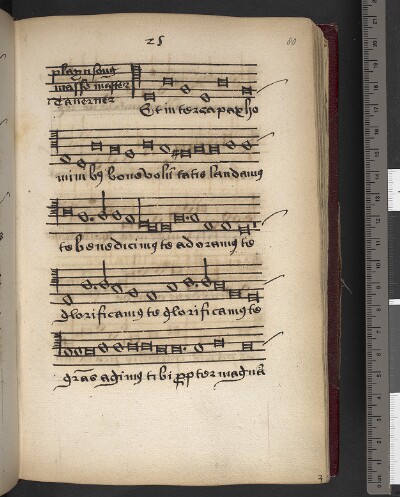 25 80
playn song
masse master
Taverner
Et in terra pax ho
mi ni bus bone volū tatis laudamus
te benedicimus te adoramus te
glorificamus te glorificamus te
grās agimus tibi propter magnā
7